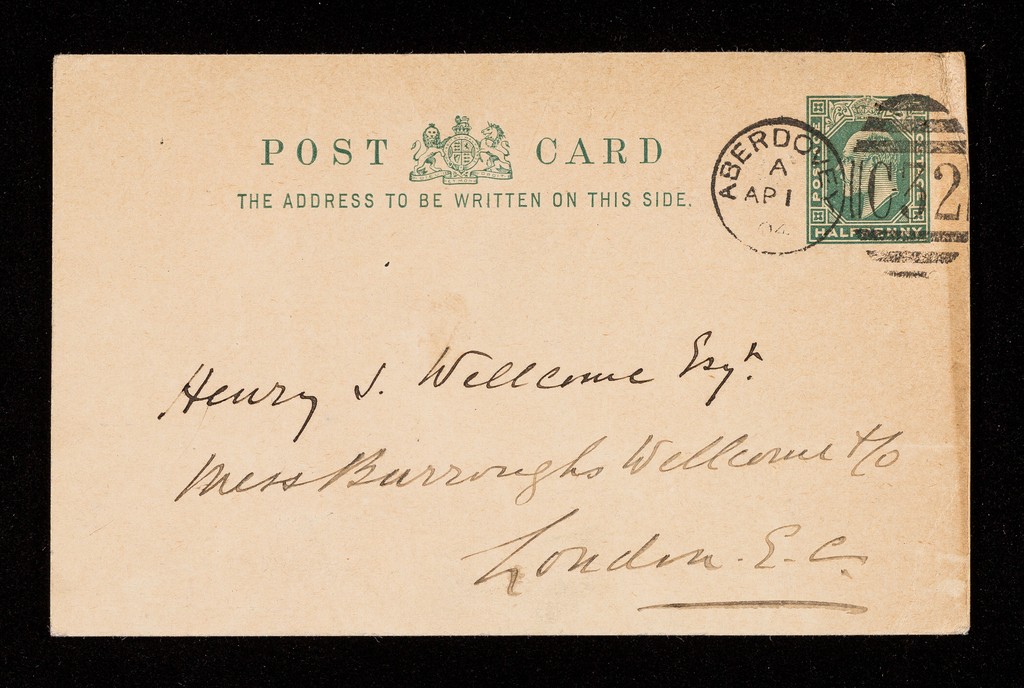 POST CARD
THE ADDRESS TO BE WRITTEN ON THIS SIDE.
ABERDOVEY
A
AP 1
04
POSTAGE
HALFPENNY
Henry S. Wellcome Esqr.
Mess Burroughs Wellcome & Co
London. E.C.